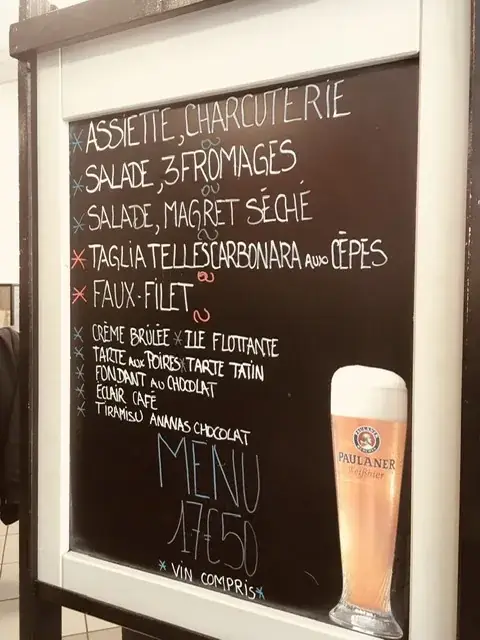 * ASSIETTE, CHARCUTERIE
ou
* SALADE, 3 FROMAGES
ou
* SALADE, MAGRET SÉCHÉ
* TAGLIATELLES CARBONARA aux CÈPES
ou
* FAUX-FILET
* CRÈME BRÛLÉE * ILE FLOTTANTE
* TARTE aux POIRES * TARTE TATIN
* FONDANT au CHOCOLAT
* ECLAIR CAFÉ
* TIRAMISU ANANAS CHOCOLAT
MENU
17€50
* VIN COMPRIS *
PAULANER
Weißbier